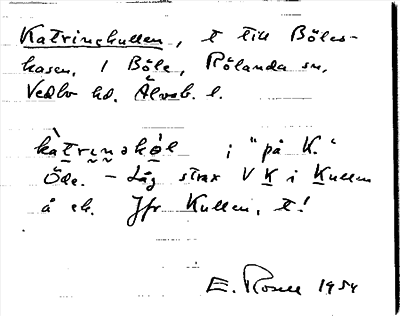 Katrinekullen, t till Böles-
kasen, 1 Böle, Rölanda sn,
Vedbo hd. Älvsb. l.
kàtrịṇəkò̩l ; "på K."
Öde. - Låg strax V K i Kullen
å ek. Jfr Kullen, t!
E. Rosell 1954